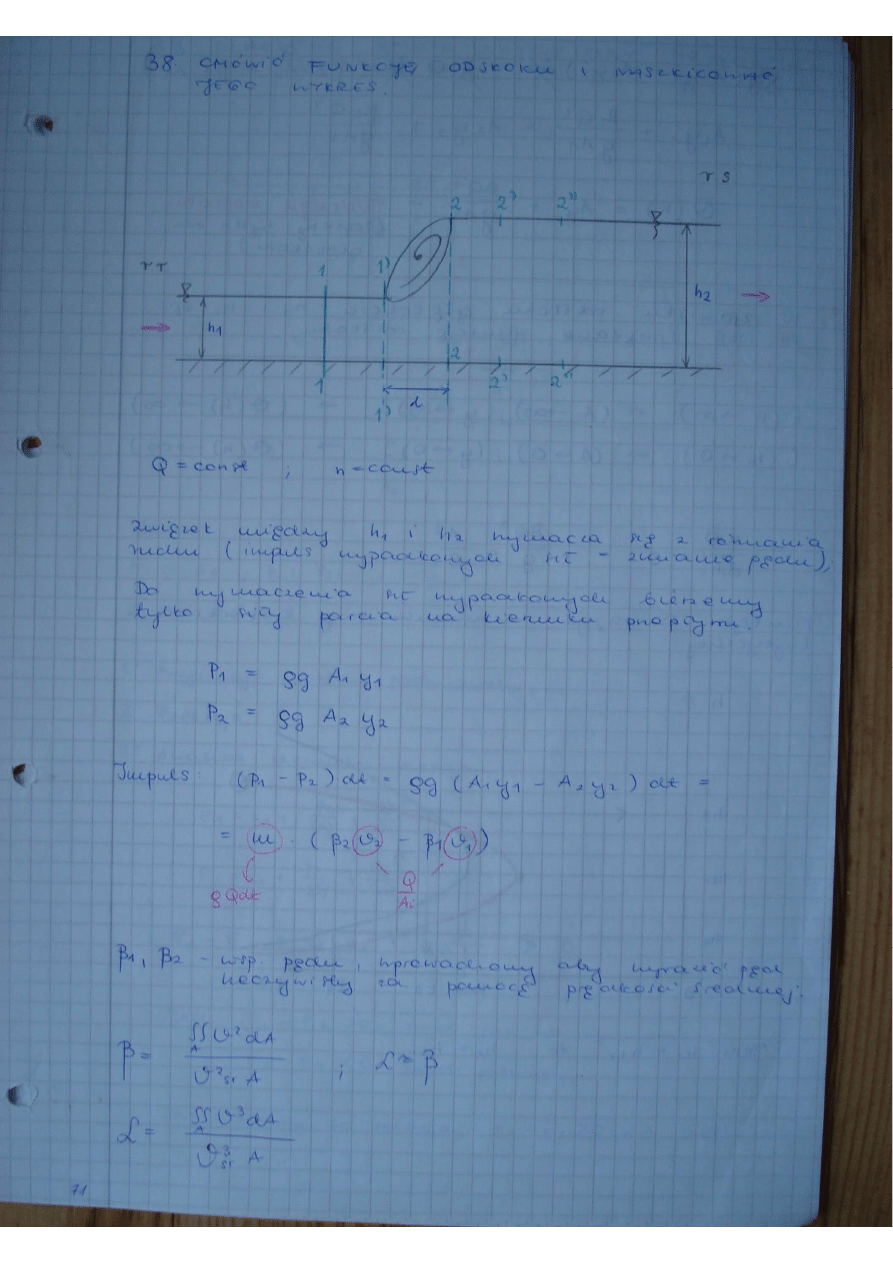 38. OMÓWIĆ FUNKCJĘ ODSKOKU I NASZKICOWAĆ
JEGO WYKRES.
r s
2 2' 2''
r r
1 1'
h1
h2
2
1 2' 2''
1' d
Q = const ; n = const
Związek między h1 i h2 wyznacza się z równania
ruchu (impuls wypadkowych sił = zmianie pędu),
Do wyznaczenia sił wypadkowych bierzemy
tylko siły parcia na kierunku przepływu.
P1 = ρg A1 y1
P2 = ρg A2 y2
Impuls: (P1 - P2) dt = ρg (A1y1 - A2y2) dt =
= m · (β2 ϑ2 - β1 ϑ1)
ρQdt Q/Ai
β1, β2 - wsp. pędu, wprowadzony aby wyrazić pęd
rzeczywisty za pomocą prędkości średniej.
β = ∫∫A ϑ² dA / ϑ²śr A ; α ≈ β
α = ∫∫A ϑ³ dA / ϑ³śr A
71